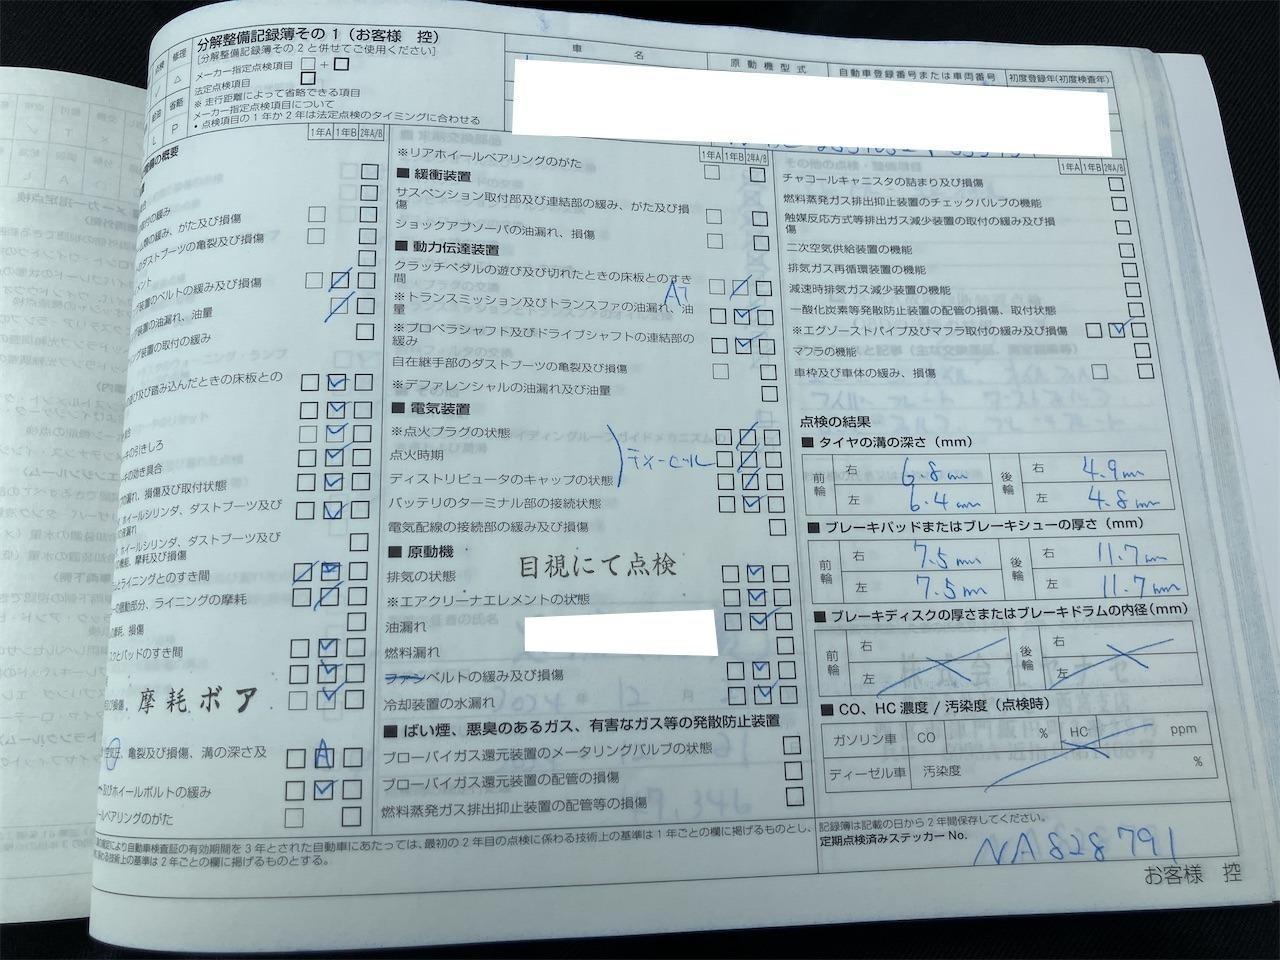 分解整備記録簿その1(お客様 控)
[分解整備記録簿その2と併せてご使用ください]
メーカー指定点検項目 +
法定点検項目
※ 走行距離によって省略できる項目
メーカー指定点検項目について
・点検項目の1年か2年は法定点検のタイミングに合わせる
点検
修理
△
給油
省略
L
P
車 名
原動機型式
自動車登録番号または車両番号
初度登録年(初度検査年)
1年A 1年B 2年A/B
の概要
の緩み、がた及び損傷
のダストブーツの亀裂及び損傷
装置のベルトの緩み及び損傷
装置の油漏れ、油量
装置の取付の緩み
及び踏み込んだときの床板との
の引きしろ
の効き具合
漏れ、損傷及び取付状態
ホイールシリンダ、ダストブーツ及び
ホイールシリンダ、ダストブーツ及び
機能、摩耗及び損傷
とライニングとのすき間
の摺動部分、ライニングの摩耗
摩耗、損傷
とパッドのすき間
摩耗ボア
亀裂及び損傷、溝の深さ及
A
及びホイールボルトの緩み
ールベアリングのがた
1年A 1年B 2年A/B
※リアホイールベアリングのがた
■ 緩衝装置
サスペンション取付部及び連結部の緩み、がた及び損
傷
ショックアブソーバの油漏れ、損傷
■ 動力伝達装置
クラッチペダルの遊び及び切れたときの床板とのすき
間
AT
※トランスミッション及びトランスファの油漏れ、油
量
※プロペラシャフト及びドライブシャフトの連結部の
緩み
自在継手部のダストブーツの亀裂及び損傷
※デファレンシャルの油漏れ及び油量
■ 電気装置
※点火プラグの状態
点火時期
ディーゼル
ディストリビュータのキャップの状態
バッテリのターミナル部の接続状態
電気配線の接続部の緩み及び損傷
■ 原動機
目視にて点検
排気の状態
※エアクリーナエレメントの状態
油漏れ
燃料漏れ
ファンベルトの緩み及び損傷
冷却装置の水漏れ
■ ばい煙、悪臭のあるガス、有害なガス等の発散防止装置
ブローバイガス還元装置のメータリングバルブの状態
ブローバイガス還元装置の配管の損傷
燃料蒸発ガス排出抑止装置の配管等の損傷
1年A 1年B 2年A/B
チャコールキャニスタの詰まり及び損傷
燃料蒸発ガス排出抑止装置のチェックバルブの機能
触媒反応方式等排出ガス減少装置の取付の緩み及び損
傷
二次空気供給装置の機能
排気ガス再循環装置の機能
減速時排気ガス減少装置の機能
一酸化炭素等発散防止装置の配管の損傷、取付状態
※エグゾーストパイプ及びマフラ取付の緩み及び損傷
マフラの機能
車枠及び車体の緩み、損傷
点検の結果
■ タイヤの溝の深さ(mm)
前輪 右 6.8mm 後輪 右 4.9mm
左 6.4mm 左 4.8mm
■ ブレーキパッドまたはブレーキシューの厚さ(mm)
前輪 右 7.5mm 後輪 右 11.7mm
左 7.5mm 左 11.7mm
■ ブレーキディスクの厚さまたはブレーキドラムの内径(mm)
前輪 右 後輪 右
左 左
■ CO、HC濃度/汚染度(点検時)
ガソリン車 CO % HC ppm
ディーゼル車 汚染度 %
により自動車検査証の有効期間を3年とされた自動車にあたっては、最初の2年目の点検に係わる技術上の基準は1年ごとの欄に掲げるものとし、
の基準は2年ごとの欄に掲げるものとする。
記録簿は記載の日から2年間保存してください。
定期点検済みステッカーNo. NA828791
お客様 控